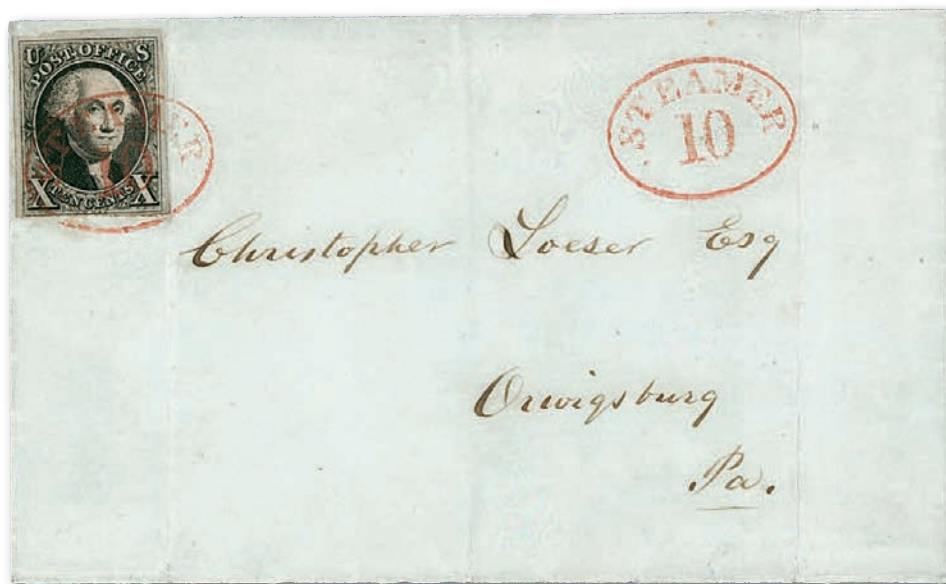 U S
POST OFFICE
X TEN CENTS X
STEAMER
10
STEAMER
10
Christopher Loeser Esq
Orwigsburg
Pa.